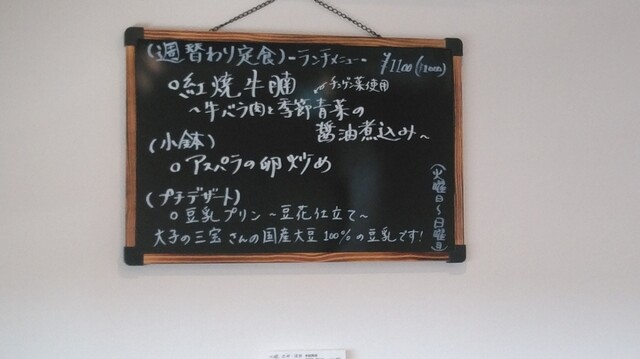 (週替わり定食)-ランチメニュー- ¥1100
○紅焼牛腩 チンゲン菜使用
~牛バラ肉と季節青菜の
醤油煮込み~
(小鉢)
○アスパラの卵炒め
(プチデザート)
○豆乳プリン ~豆花仕立て~
大子の三宝さんの国産大豆100%の豆乳です!
(火曜日~日曜日)